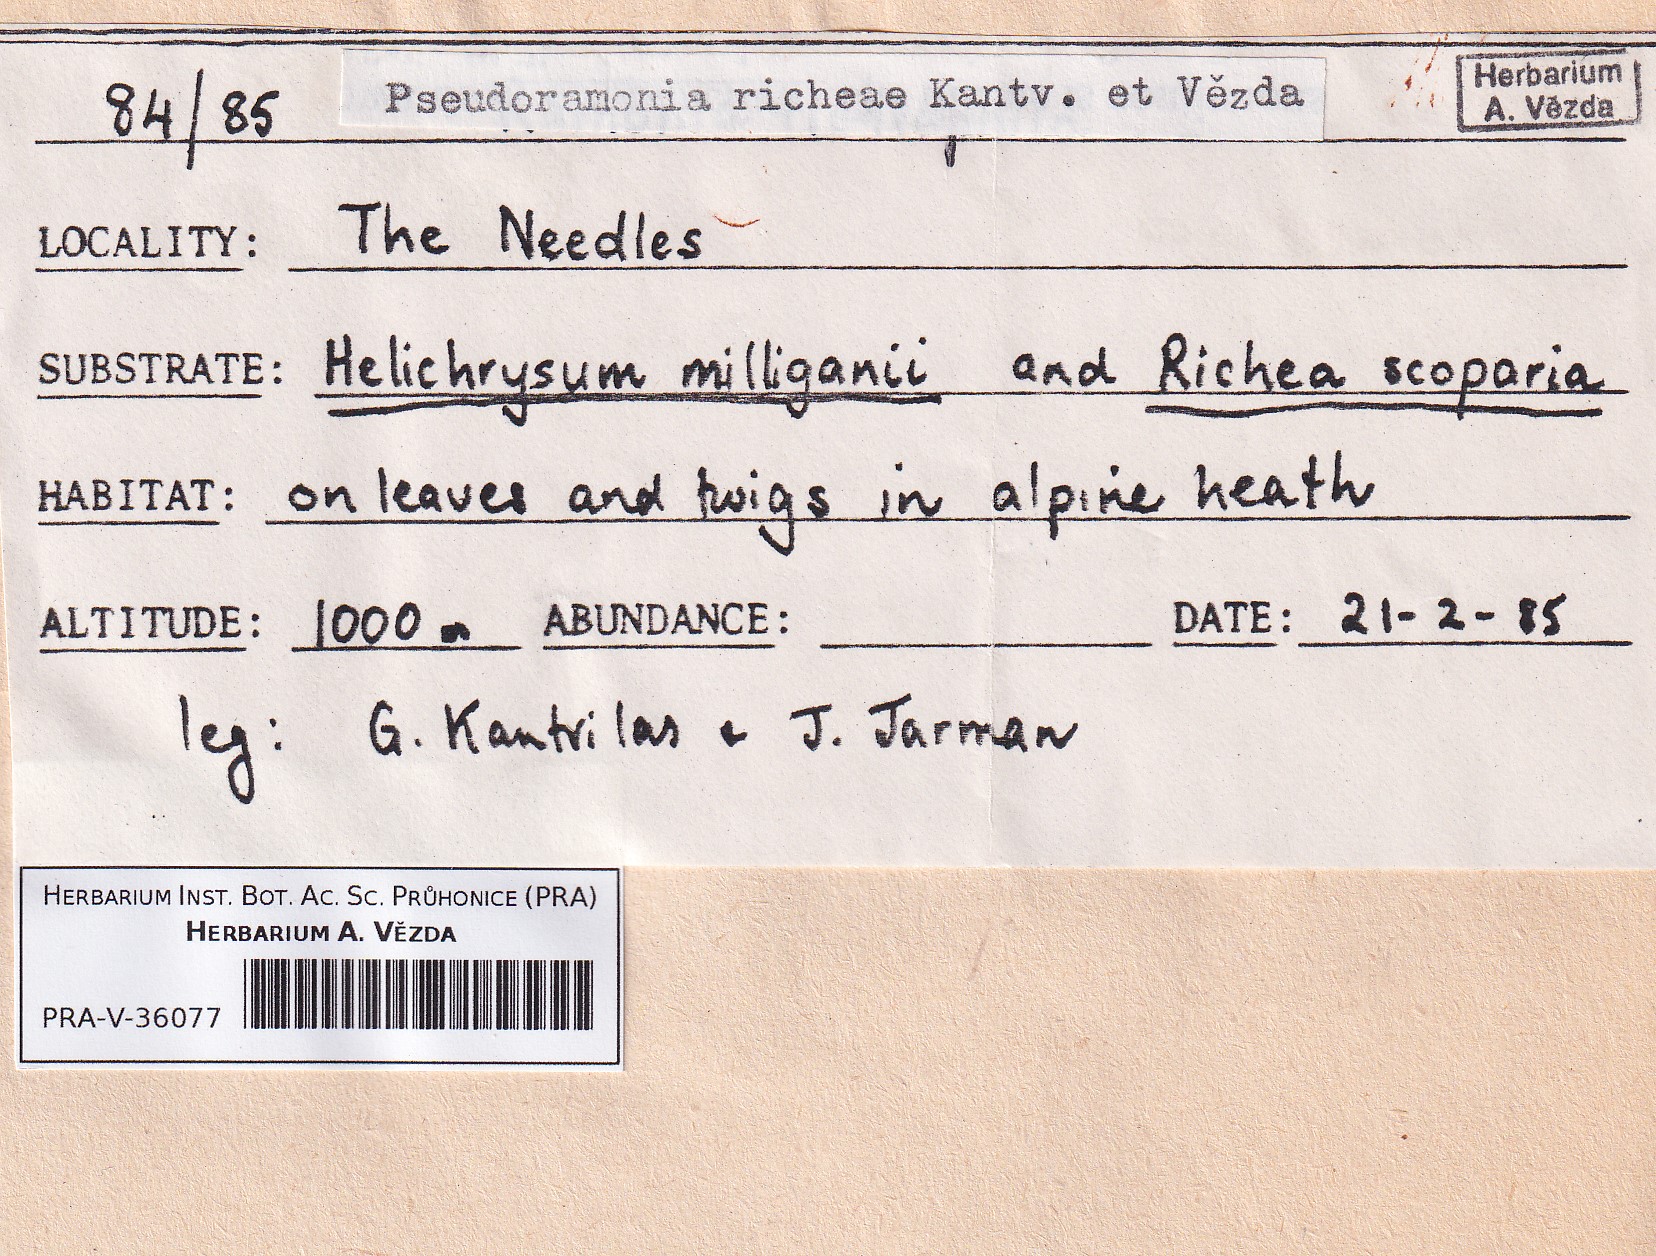 84/85 Pseudoramonia richeae Kantv. et Vězda
Herbarium
A. Vězda
LOCALITY: The Needles
SUBSTRATE: Helichrysum milliganii and Richea scoparia
HABITAT: on leaves and twigs in alpine heath
ALTITUDE: 1000 m ABUNDANCE: DATE: 21-2-85
leg: G. Kantvilas & J. Jarman
HERBARIUM INST. BOT. AC. SC. PRŮHONICE (PRA)
HERBARIUM A. VĚZDA
PRA-V-36077